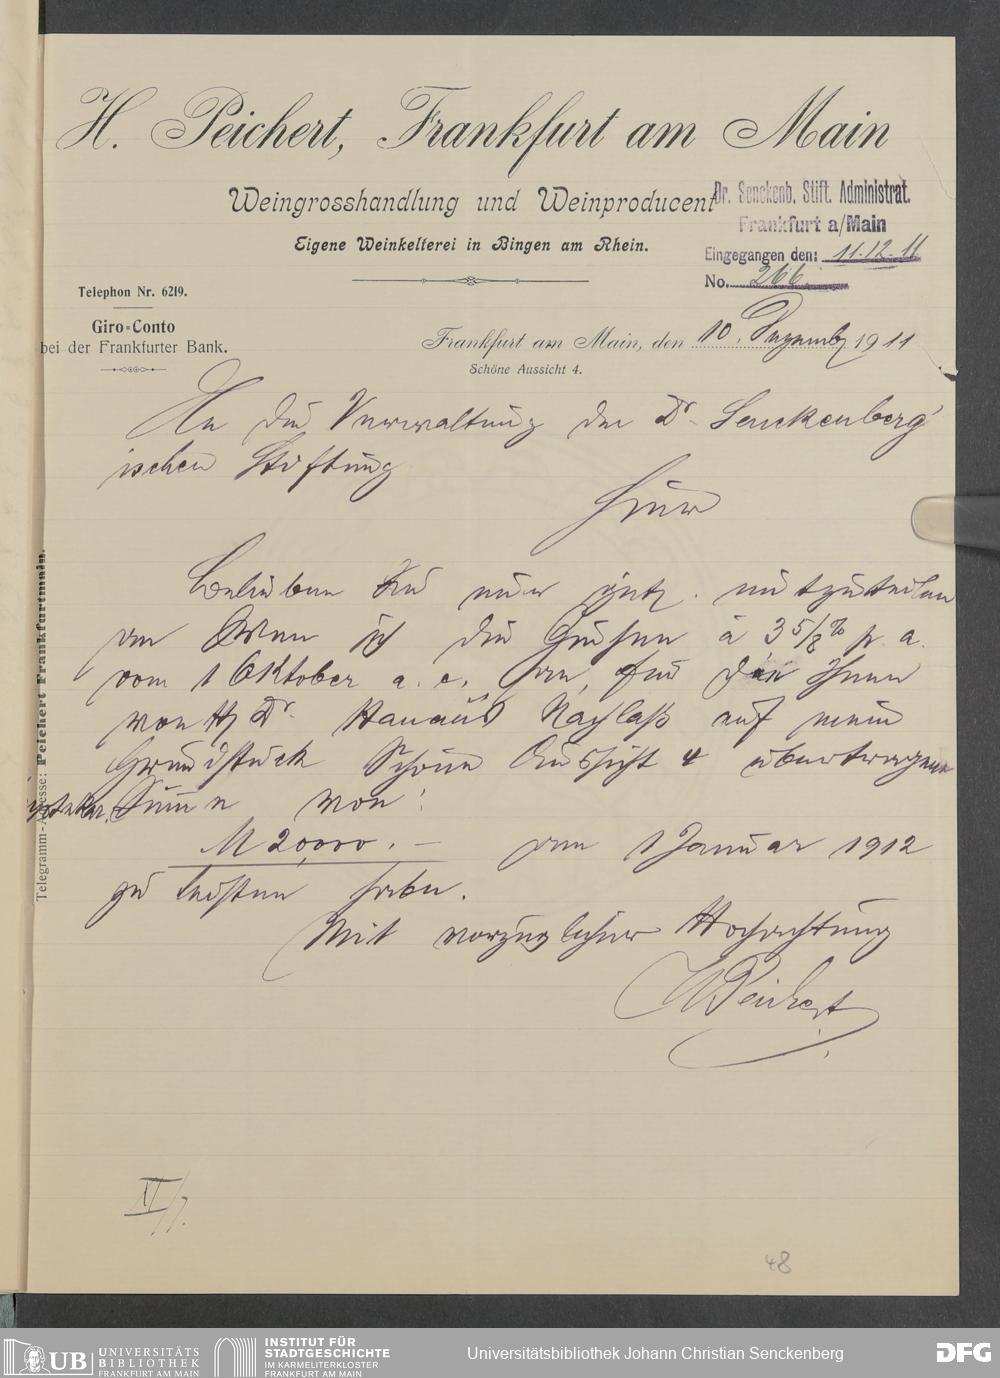 H. Peichert, Frankfurt am Main
Weingrosshandlung und Weinproducent
Eigene Weinkelterei in Bingen am Rhein.
Dr. Senckenb. Stift. Administrat.
Frankfurt a/Main
Eingegangen den: 11.12.11
No. 266
Telephon Nr. 6219.
Giro-Conto
bei der Frankfurter Bank.
Frankfurt am Main, den 10. Dezemb 1911
Schöne Aussicht 4.
Telegramm-Adresse: Peichert Frankfurtmain.
An die Verwaltung der Dr. Senckenberg'
ischen Stiftung
Hier
Belieben Sie mir mitzuteilen
an Wen ich die Zinsen à 3 5/8 % p. a.
vom 1 Oktober a. c. für die Ihnen
von H Dr. Hanau's Nachlaß auf mein
Grundstück Schöne Aussicht 4 übertragene
Summe von:
M 20,000.- am 1 Januar 1912
zu leisten habe.
Mit vorzüglicher Hochachtung
H Peichert
II/7.
48
UB UNIVERSITÄTS
BIBLIOTHEK
FRANKFURT AM MAIN
INSTITUT FÜR
STADTGESCHICHTE
IM KARMELITERKLOSTER
FRANKFURT AM MAIN
Universitätsbibliothek Johann Christian Senckenberg
DFG